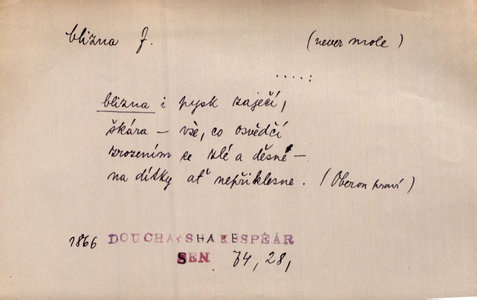 blizna f. (never mole)
....:
blizna i pysk zaječí,
škára – vše, co osvědčí
zrozením se zlé a děsné –
na dítky ať nepřiklesne. (Oberon praví)
1866 DOUCHA, SHAKESPEAR
SEN 74, 28,